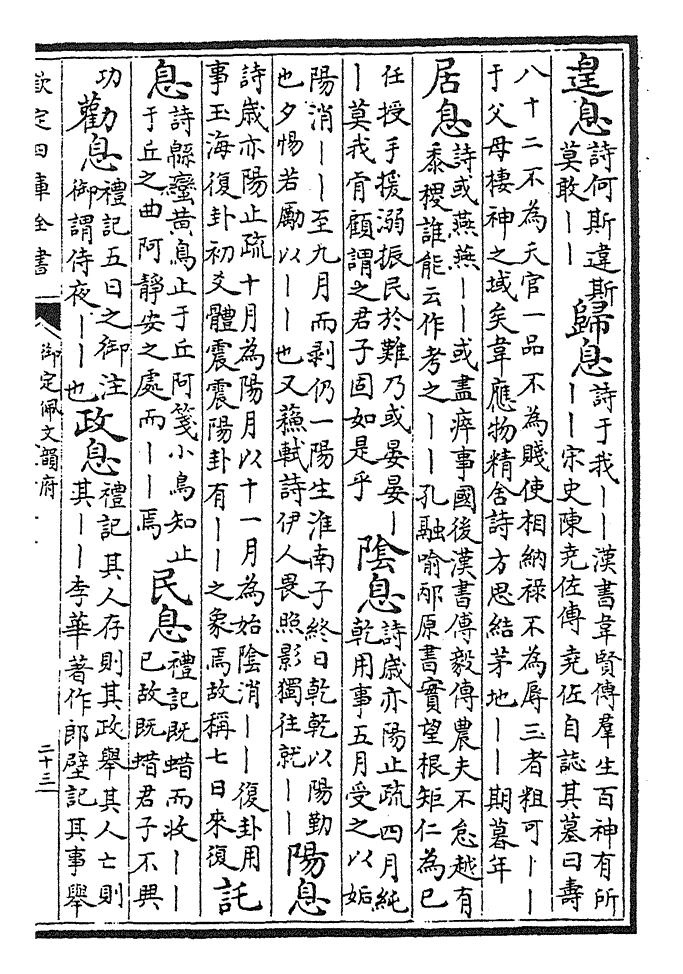 遑息 詩何斯違斯
莫敢｜｜
歸息 詩于我｜｜漢書韋賢傳羣生百神有所
｜｜宋史陳堯佐傳堯佐自誌其墓曰壽
八十二不為夭官一品不為賤使相納祿不為辱三者粗可｜｜
于父母棲神之域矣韋應物精舍詩方思結茅地｜｜期暮年
居息 詩或燕燕｜｜或盡瘁事國後漢書傅毅傳農夫不怠越有
黍稷誰能云作考之｜｜孔融喻邴原書實望根矩仁為已
任授手援溺振民於難乃或晏晏｜
｜莫我肯顧謂之君子固如是乎
陰息 詩歲亦陽止疏四月純
乾用事五月受之以姤
陽消｜｜至九月而剥仍一陽生淮南子終日乾乾以陽動
也夕惕若厲以｜｜也又蘇軾詩伊人畏照影獨往就｜｜
陽息
詩歲亦陽止疏十月為陽月以十一月為始陰消｜｜復卦用
事玉海復卦初爻體震震陽卦有｜｜之象焉故稱七日來復
託
息 詩緜蠻黄鳥止于丘阿箋小鳥知止
于丘之曲阿靜安之處而｜｜焉
民息 禮記既蜡而收｜｜
已故既蜡君子不興
功
勸息 禮記五日之御注
御謂侍夜｜｜也
政息 禮記其人存則其政舉其人亡則
其｜｜李華著作郎壁記其事舉
欽定四庫全書
御定佩文韻府
二十三